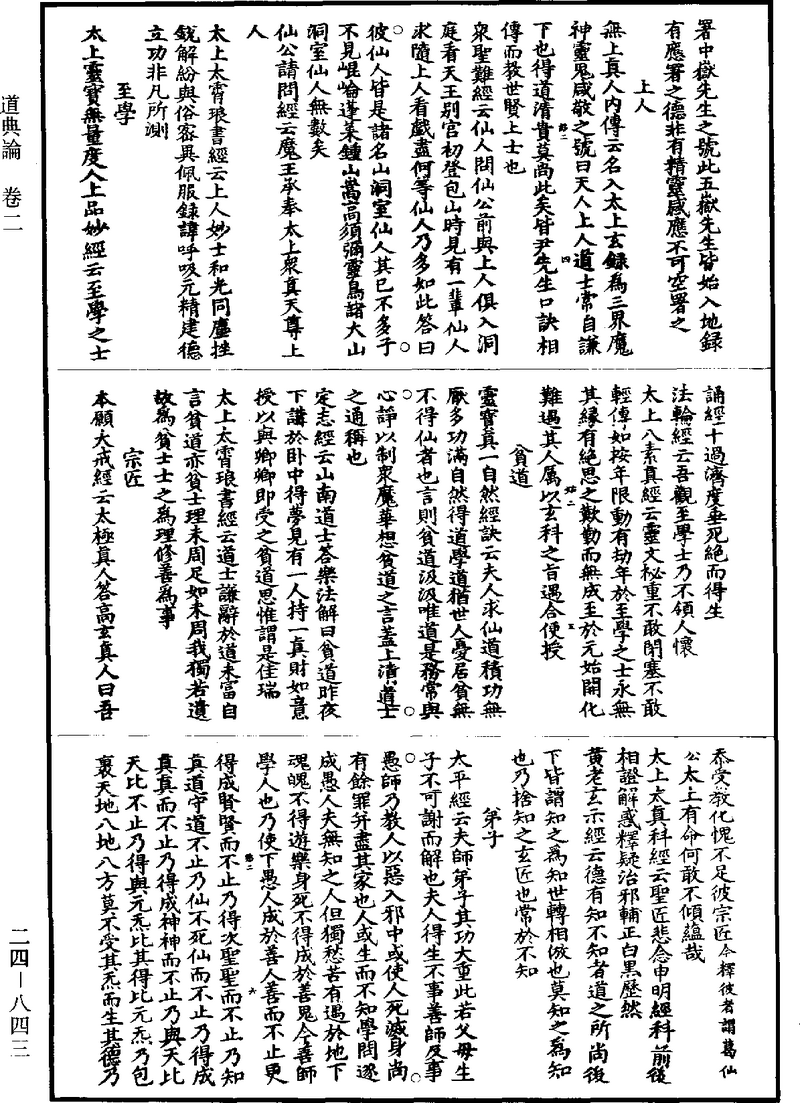 道典論　卷二
署中嶽先生之號此五嶽先生皆始入地録
有應署之德非有精靈感應不可空署之
上人
無上真人内傳云名入太上玄録為三界魔
神靈鬼咸敬之號曰天人上人道士常自謙
下也得道清貴莫尚此矣皆尹先生口訣相
傳而教世賢上士也
衆聖難經云仙人問仙公前與上人俱入洞
庭看天王别宫初登包山時見有一輩仙人
求隨上人看戲盡何等仙人乃多如此答曰
彼仙人皆是諸名山洞室仙人其已不多子
不見崐崘蓬萊鍾山嵩高須彌靈鳥諸大山
洞室仙人無數矣
仙公請問經云魔王承奉太上衆真天尊上
人
太上太霄琅書經云上人妙士和光同塵挫
銳解紛與俗密異佩服録諱呼吸元精建德
立功非凡所測
至學
太上靈寶無量度人上品妙經云至學之士
誦經十過濟度垂死絕而得生
法輪經云吾觀至學士乃不領人懷
太上八素真經云靈文秘重不敢閉塞不敢
輕傳如按年限動有劫年於至學之士永無
其緣有絕思之歎勤而無成至於元始開化
難遇其人屬以玄科之旨遇合便授
貧道
靈寶真一自然經訣云夫人求仙道積功無
厭多功滿自然得道學道猶世人憂居貧無
不得仙者也言則貧道汲汲唯道是務常與
心諍以制衆魔華想貧道之言蓋上清道士
之通稱也
定志經云山南道士答樂法解曰貧道昨夜
下講於卧中得夢見有一人持一真財如意
授以與卿卿即受之貧道思惟謂是佳瑞
太上太霄琅書經云道士謙辭於道未富自
言貧道亦貧士理未周足如未周我獨若遺
故為貧士士之為理修善為事
宗匠
本願大戒經云太極真人答高玄真人曰吾
忝受教化愧不足彼宗匠今釋彼者謂葛仙
公太上有命何敢不傾蘊哉
太上太真科經云聖匠悲念申明經科前後
相證解惑釋疑治邪輔正白黑歷然
黄老玄示經云德有知不知者道之所尚後
下皆謂知之為知世轉相倣也莫知之為知
也乃捨知之玄匠也常於不知
弟子
太平經云夫師弟子其功大重此若父母生
子不可謝而解也夫人得生不事善師反事
愚師乃教人以惡入邪中或使人死滅身尚
有餘罪并盡其家也人或生而不知學問遂
成愚人夫無知之人但獨愁苦有過於地下
魂魄不得遊樂身死不得成於善鬼今善師
學人也乃使下愚人成於善人善而不止更
得成賢賢而不止乃得次聖聖而不止乃知
真道守道不止乃仙不死仙而不止乃得成
真真而不止乃得成神神而不止乃與天比
天比不止乃得與元炁比其得比元炁乃包
裹天地八地八方莫不受其炁而生其德乃
二四—八四三